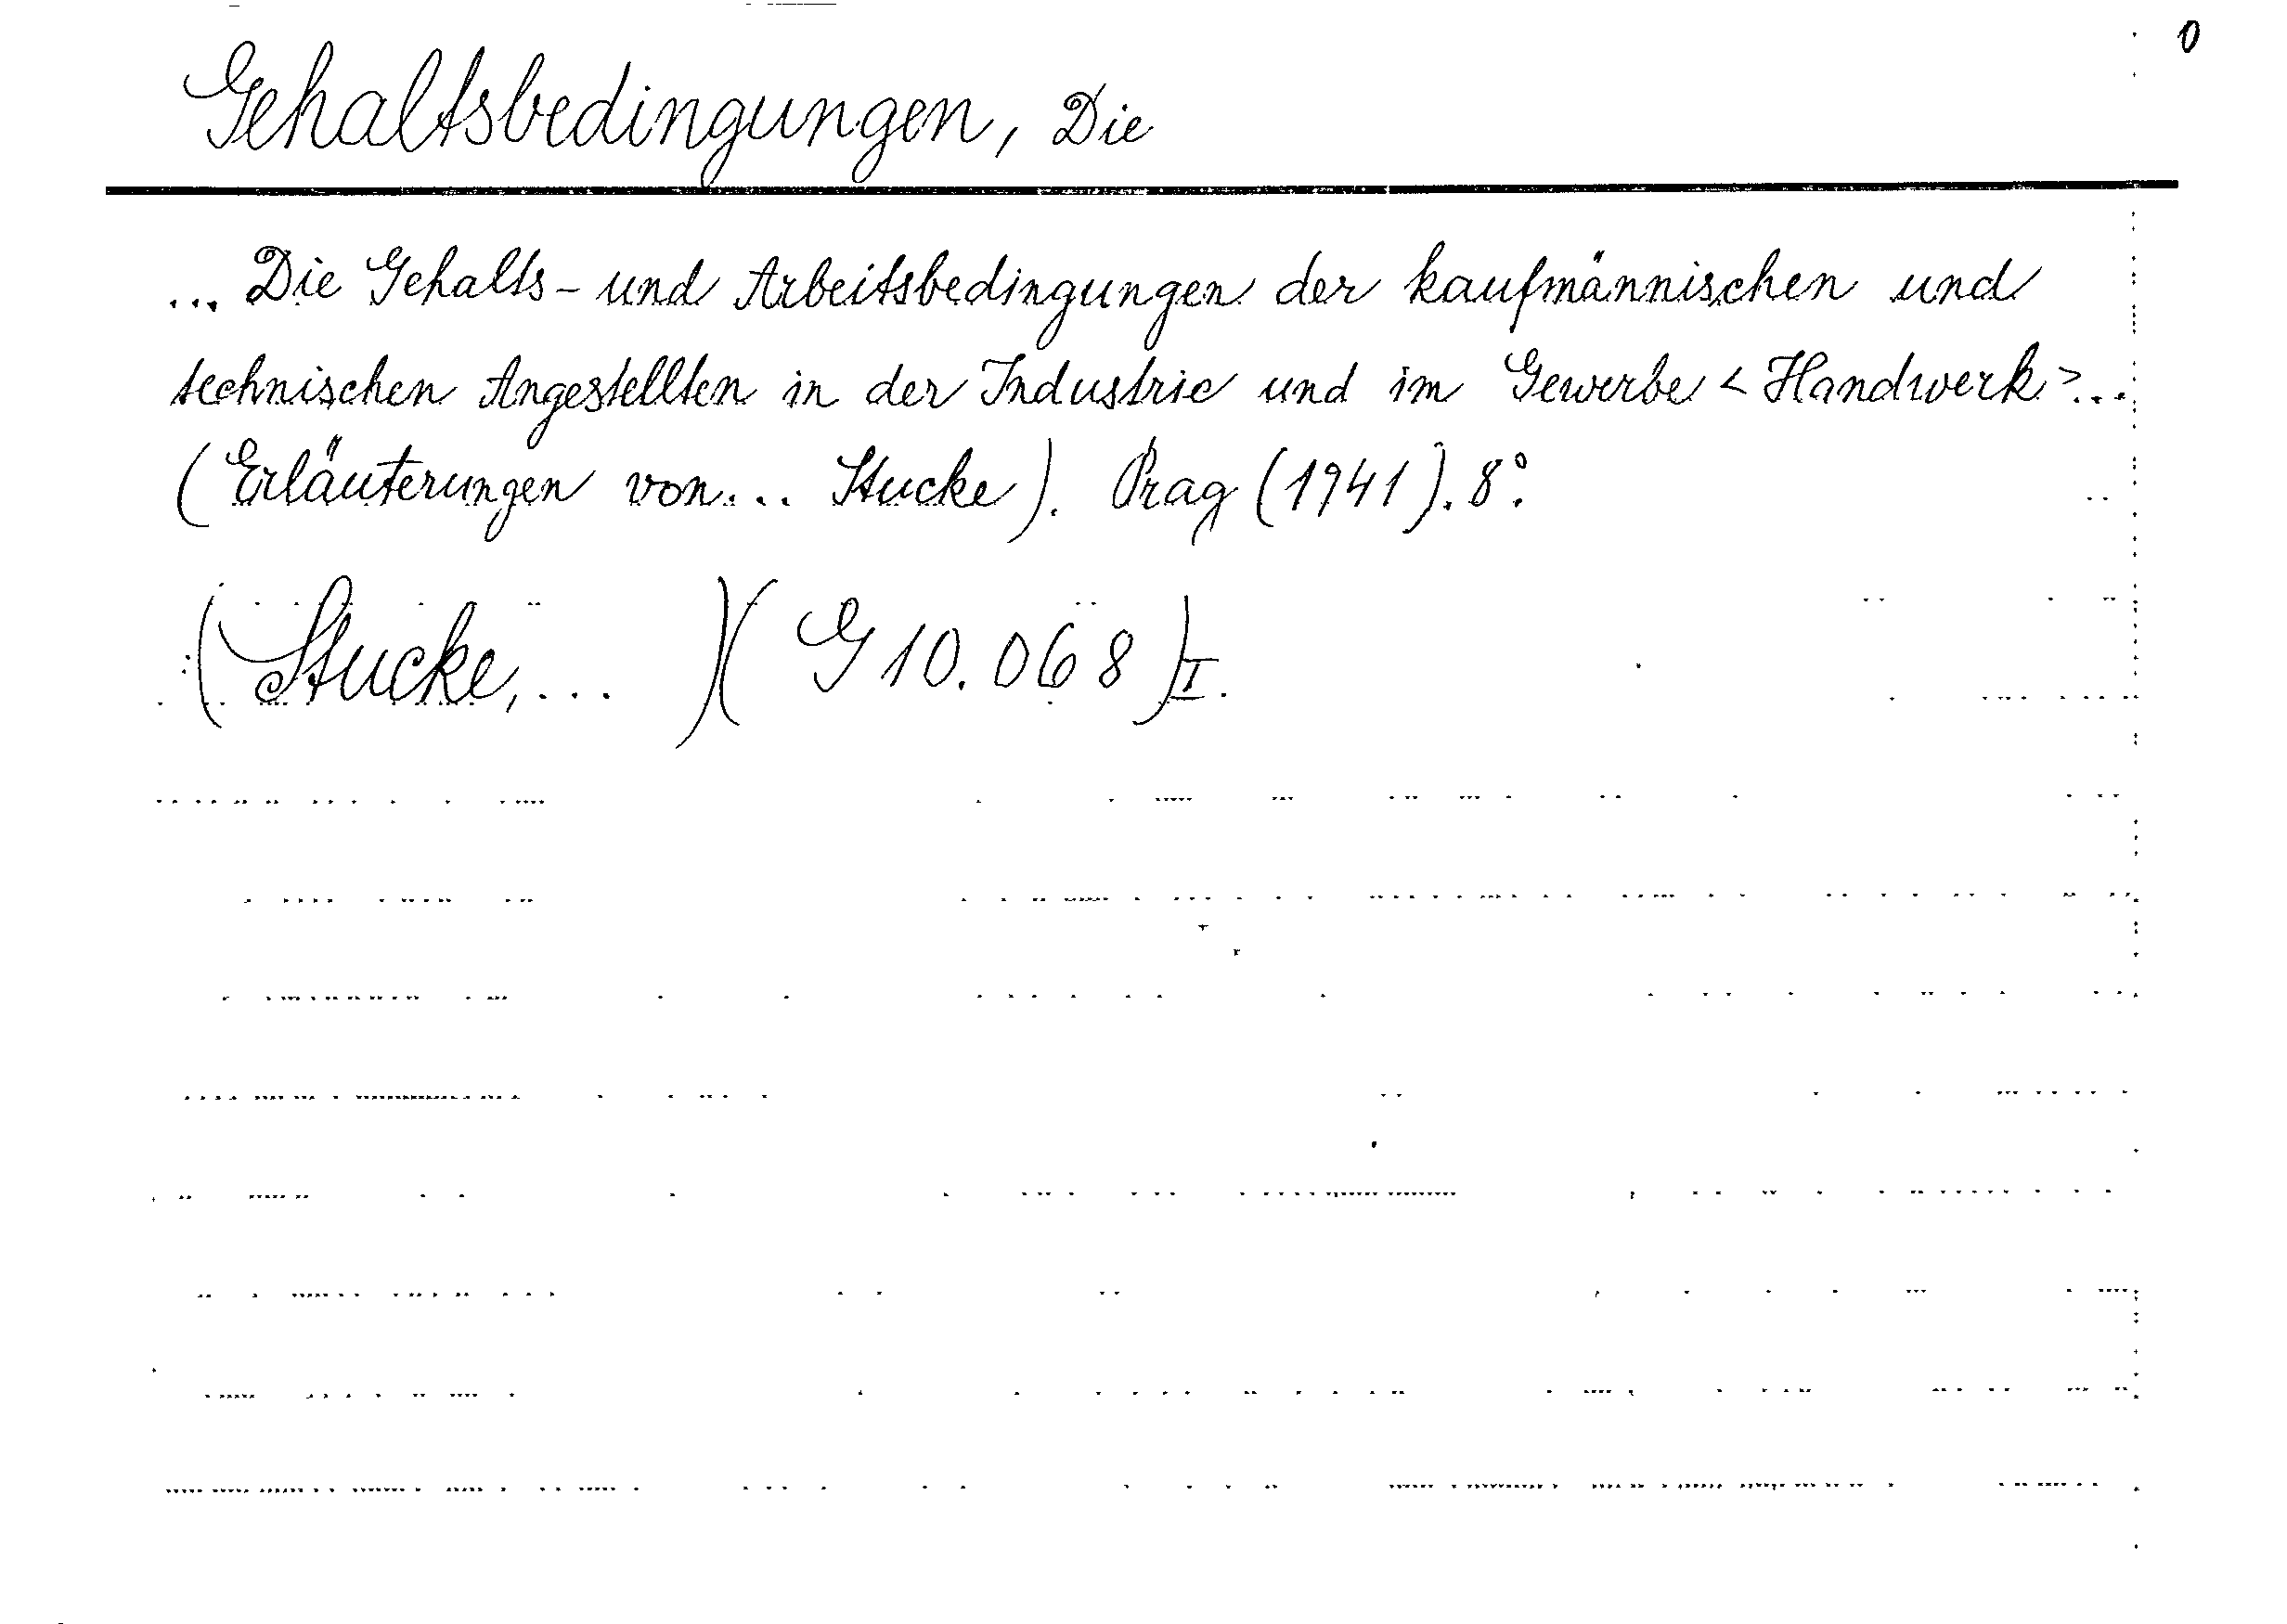 0
Gehaltsbedingungen, Die
... Die Gehalts- und Arbeitsbedingungen der kaufmännischen und
technischen Angestellten in der Industrie und im Gewerbe < Handwerk >...
(Erläuterungen von... Stucke). Prag (1941). 8°.
(Stucke,... )( G 10.068 )I.